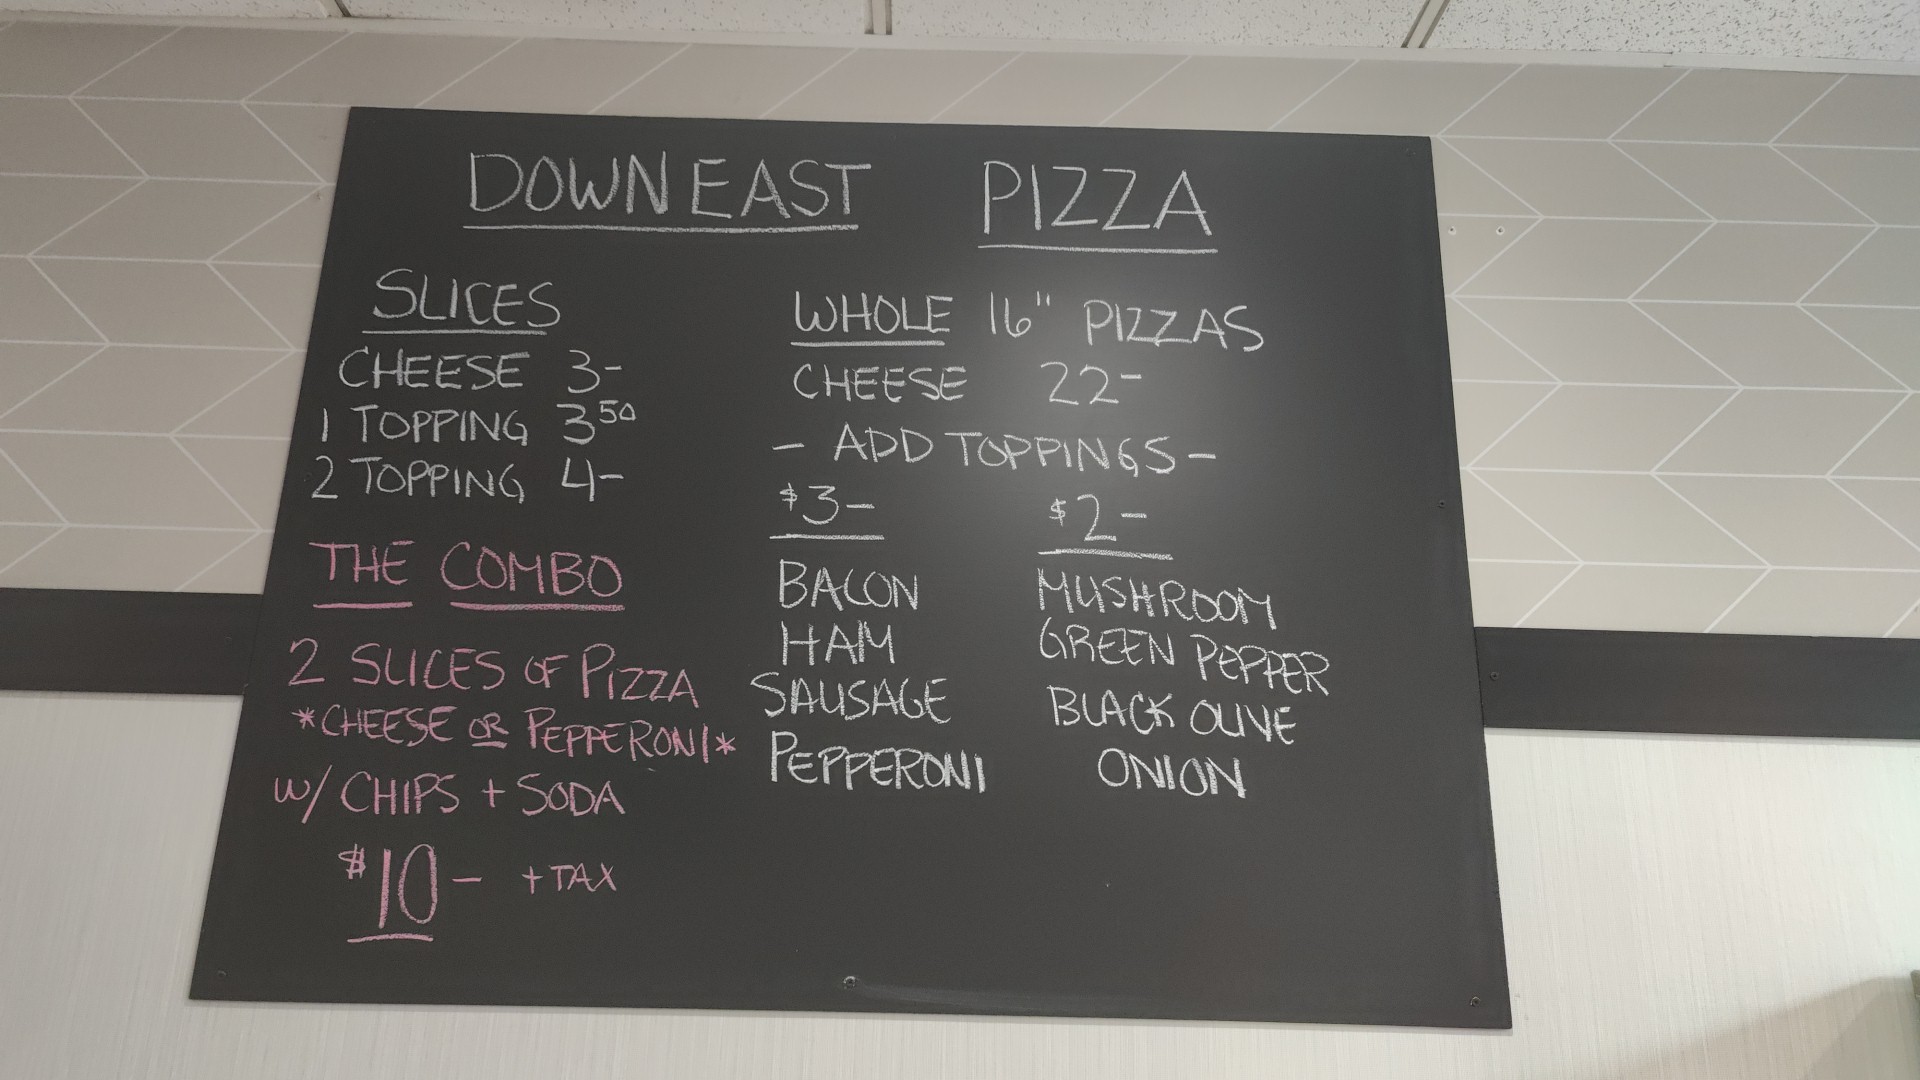 DOWNEAST PIZZA
SLICES
CHEESE 3-
1 TOPPING 3 50
2 TOPPING 4-
THE COMBO
2 SLICES OF PIZZA
*CHEESE OR PEPPERONI*
W/ CHIPS + SODA
$10- + TAX
WHOLE 16" PIZZAS
CHEESE 22-
- ADD TOPPINGS -
$3- $2-
BACON MUSHROOM
HAM GREEN PEPPER
SAUSAGE BLACK OLIVE
PEPPERONI ONION